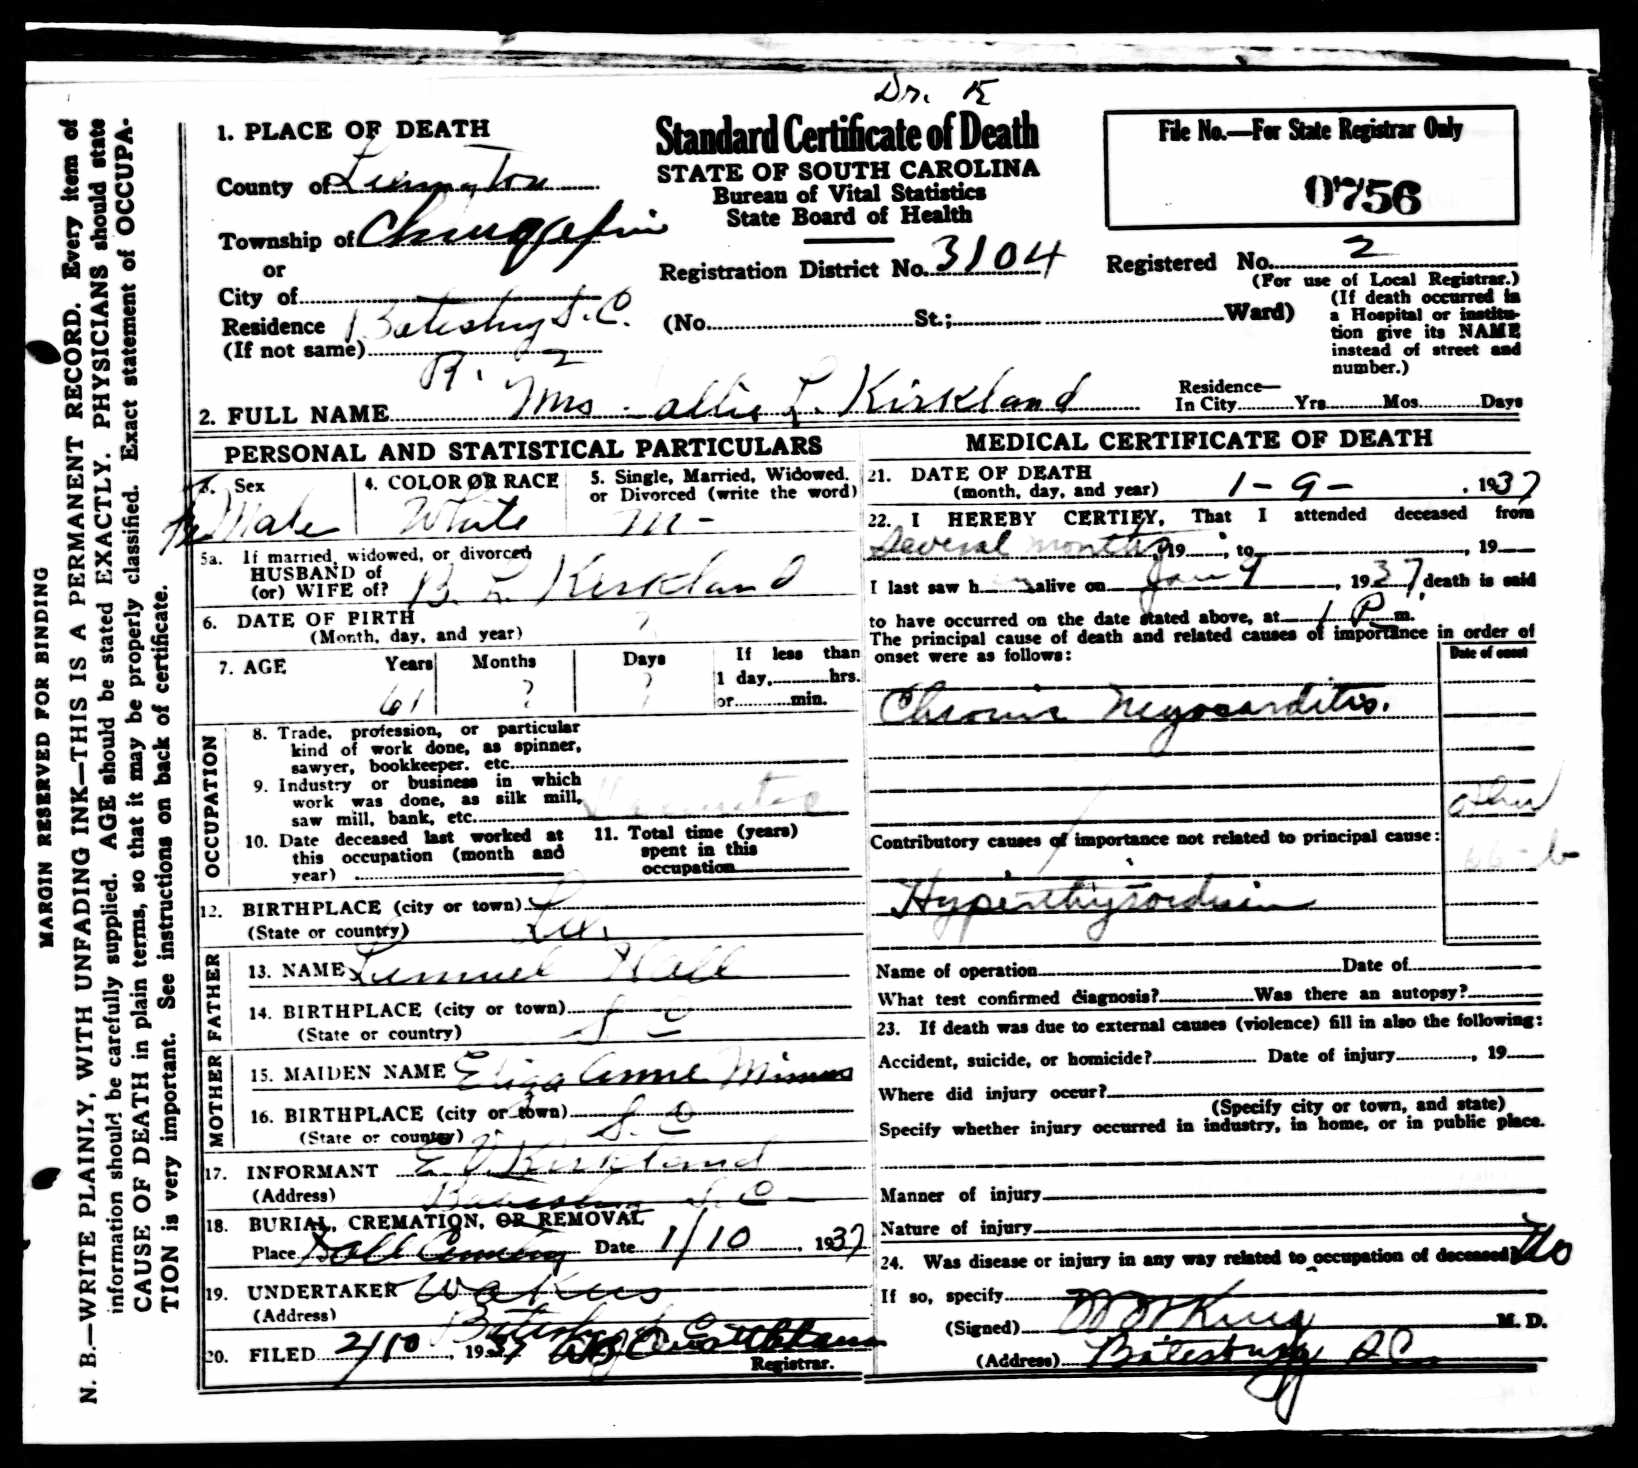 Dr. K
N. B.—WRITE PLAINLY, WITH UNFADING INK—THIS IS A PERMANENT RECORD. Every item of
information should be carefully supplied. AGE should be stated EXACTLY. PHYSICIANS should state
CAUSE OF DEATH in plain terms, so that it may be properly classified. Exact statement of OCCUPA-
TION is very important. See instructions on back of certificate.
MARGIN RESERVED FOR BINDING
Standard Certificate of Death
STATE OF SOUTH CAROLINA
Bureau of Vital Statistics
State Board of Health
File No.—For State Registrar Only
0756
1. PLACE OF DEATH
County of Lexington
Township of Chinqapin
or
City of
Residence Batesburg S. C.
(If not same) R. 2
Registration District No. 3104
Registered No. 2
(For use of Local Registrar.)
(No. St.; Ward)
(If death occurred in
a Hospital or institu-
tion give its NAME
instead of street and
number.)
2. FULL NAME Mrs allie L. Kirkland
Residence—
In City Yrs Mos Days
PERSONAL AND STATISTICAL PARTICULARS
3. Sex Fe Male
4. COLOR OR RACE White
5. Single, Married, Widowed.
or Divorced (write the word) M-
5a. If married, widowed, or divorced
HUSBAND of
(or) WIFE of? B. L. Kirkland
6. DATE OF BIRTH ?
(Month, day, and year)
7. AGE Years 61 Months ? Days ?
If less than
1 day, hrs.
or min.
OCCUPATION
8. Trade, profession, or particular
kind of work done, as spinner,
sawyer, bookkeeper. etc.
9. Industry or business in which
work was done, as silk mill,
saw mill, bank, etc.
10. Date deceased last worked at
this occupation (month and
year)
11. Total time (years)
spent in this
occupation
12. BIRTHPLACE (city or town) Lex.
(State or country)
FATHER
13. NAME Lemuel Hall
14. BIRTHPLACE (city or town) S C
(State or country)
MOTHER
15. MAIDEN NAME Eliza Anne Mimms
16. BIRTHPLACE (city or town) S. C
(State or country)
17. INFORMANT Kirkland
(Address) Batesburg S. C
18. BURIAL, CREMATION, OR REMOVAL
Place Hall Cemetery Date 1/10, 1937
19. UNDERTAKER
(Address) Batesburg S. C
20. FILED 2/10, 1937
Registrar.
MEDICAL CERTIFICATE OF DEATH
21. DATE OF DEATH
(month, day, and year) 1-9-, 1937
22. I HEREBY CERTIFY, That I attended deceased from
Several months, 19 ; to , 19
I last saw her alive on Jan 9, 1937, death is said
to have occurred on the date stated above, at 1 P. m.
The principal cause of death and related causes of importance in order of
onset were as follows:
Date of onset
Chronic Myocarditis.
Contributory causes of importance not related to principal cause:
Hyperthyroidism
Name of operation Date of
What test confirmed diagnosis? Was there an autopsy?
23. If death was due to external causes (violence) fill in also the following:
Accident, suicide, or homicide? Date of injury , 19
Where did injury occur?
(Specify city or town, and state)
Specify whether injury occurred in industry, in home, or in public place.
Manner of injury
Nature of injury
24. Was disease or injury in any way related to occupation of deceased? No
If so, specify
(Signed) W W King M. D.
(Address) Batesburg S C